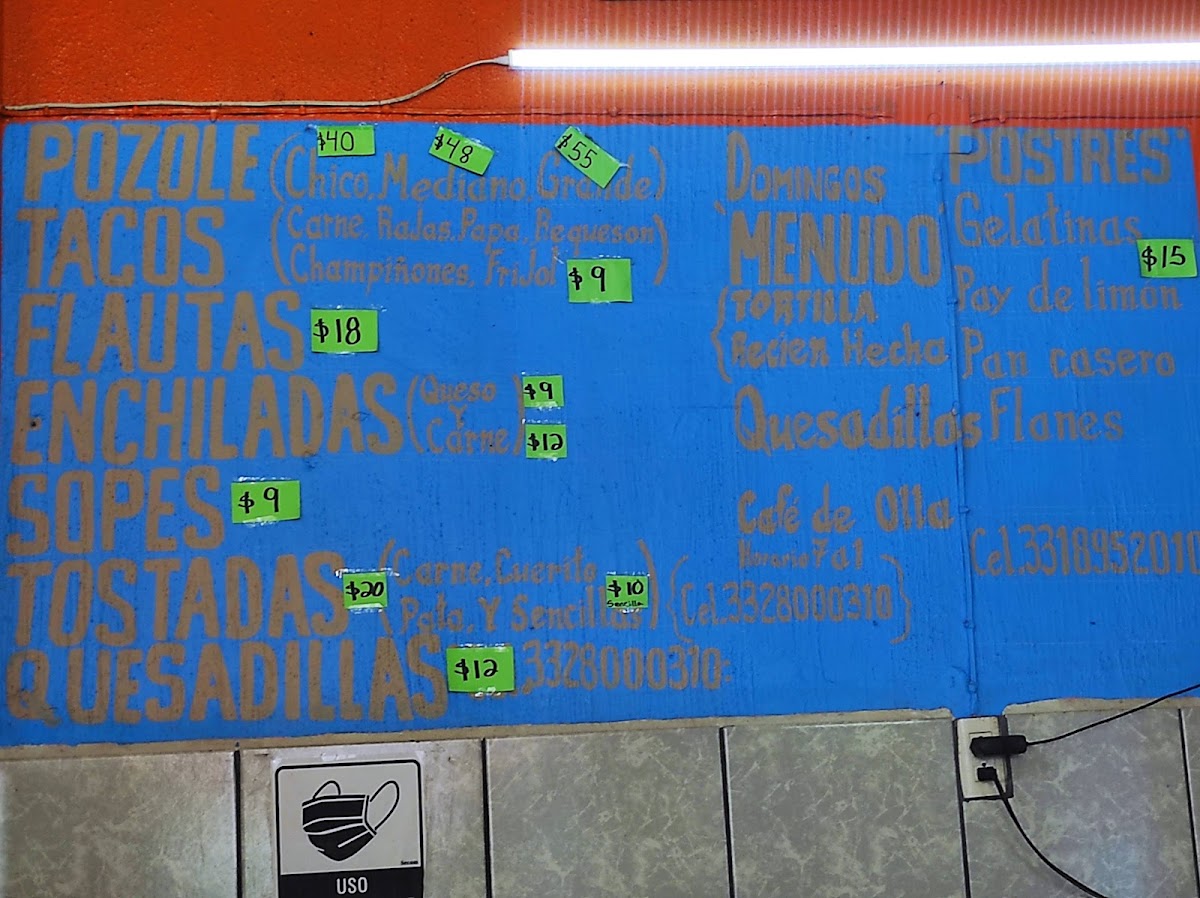 POZOLE (Chico, Mediano, Grande) $40 $48 $55
TACOS (Carne, Rajas, Papa, Requeson
Champiñones, Frijol) $9
FLAUTAS $18
ENCHILADAS (Queso $9
Y
Carne) $12
SOPES $9
TOSTADAS $20 (Carne, Cuerito
Pata, Y Sencillas) $10 Sencilla
QUESADILLAS $12 3328000310
DOMINGOS
MENUDO
(TORTILLA
Recien Hecha
Quesadillas
Café de Olla
Horario 7 a 1
(Cel.3328000310)
"POSTRES"
Gelatinas
$15
Pay de limón
Pan casero
Flanes
Cel.3318952010
USO